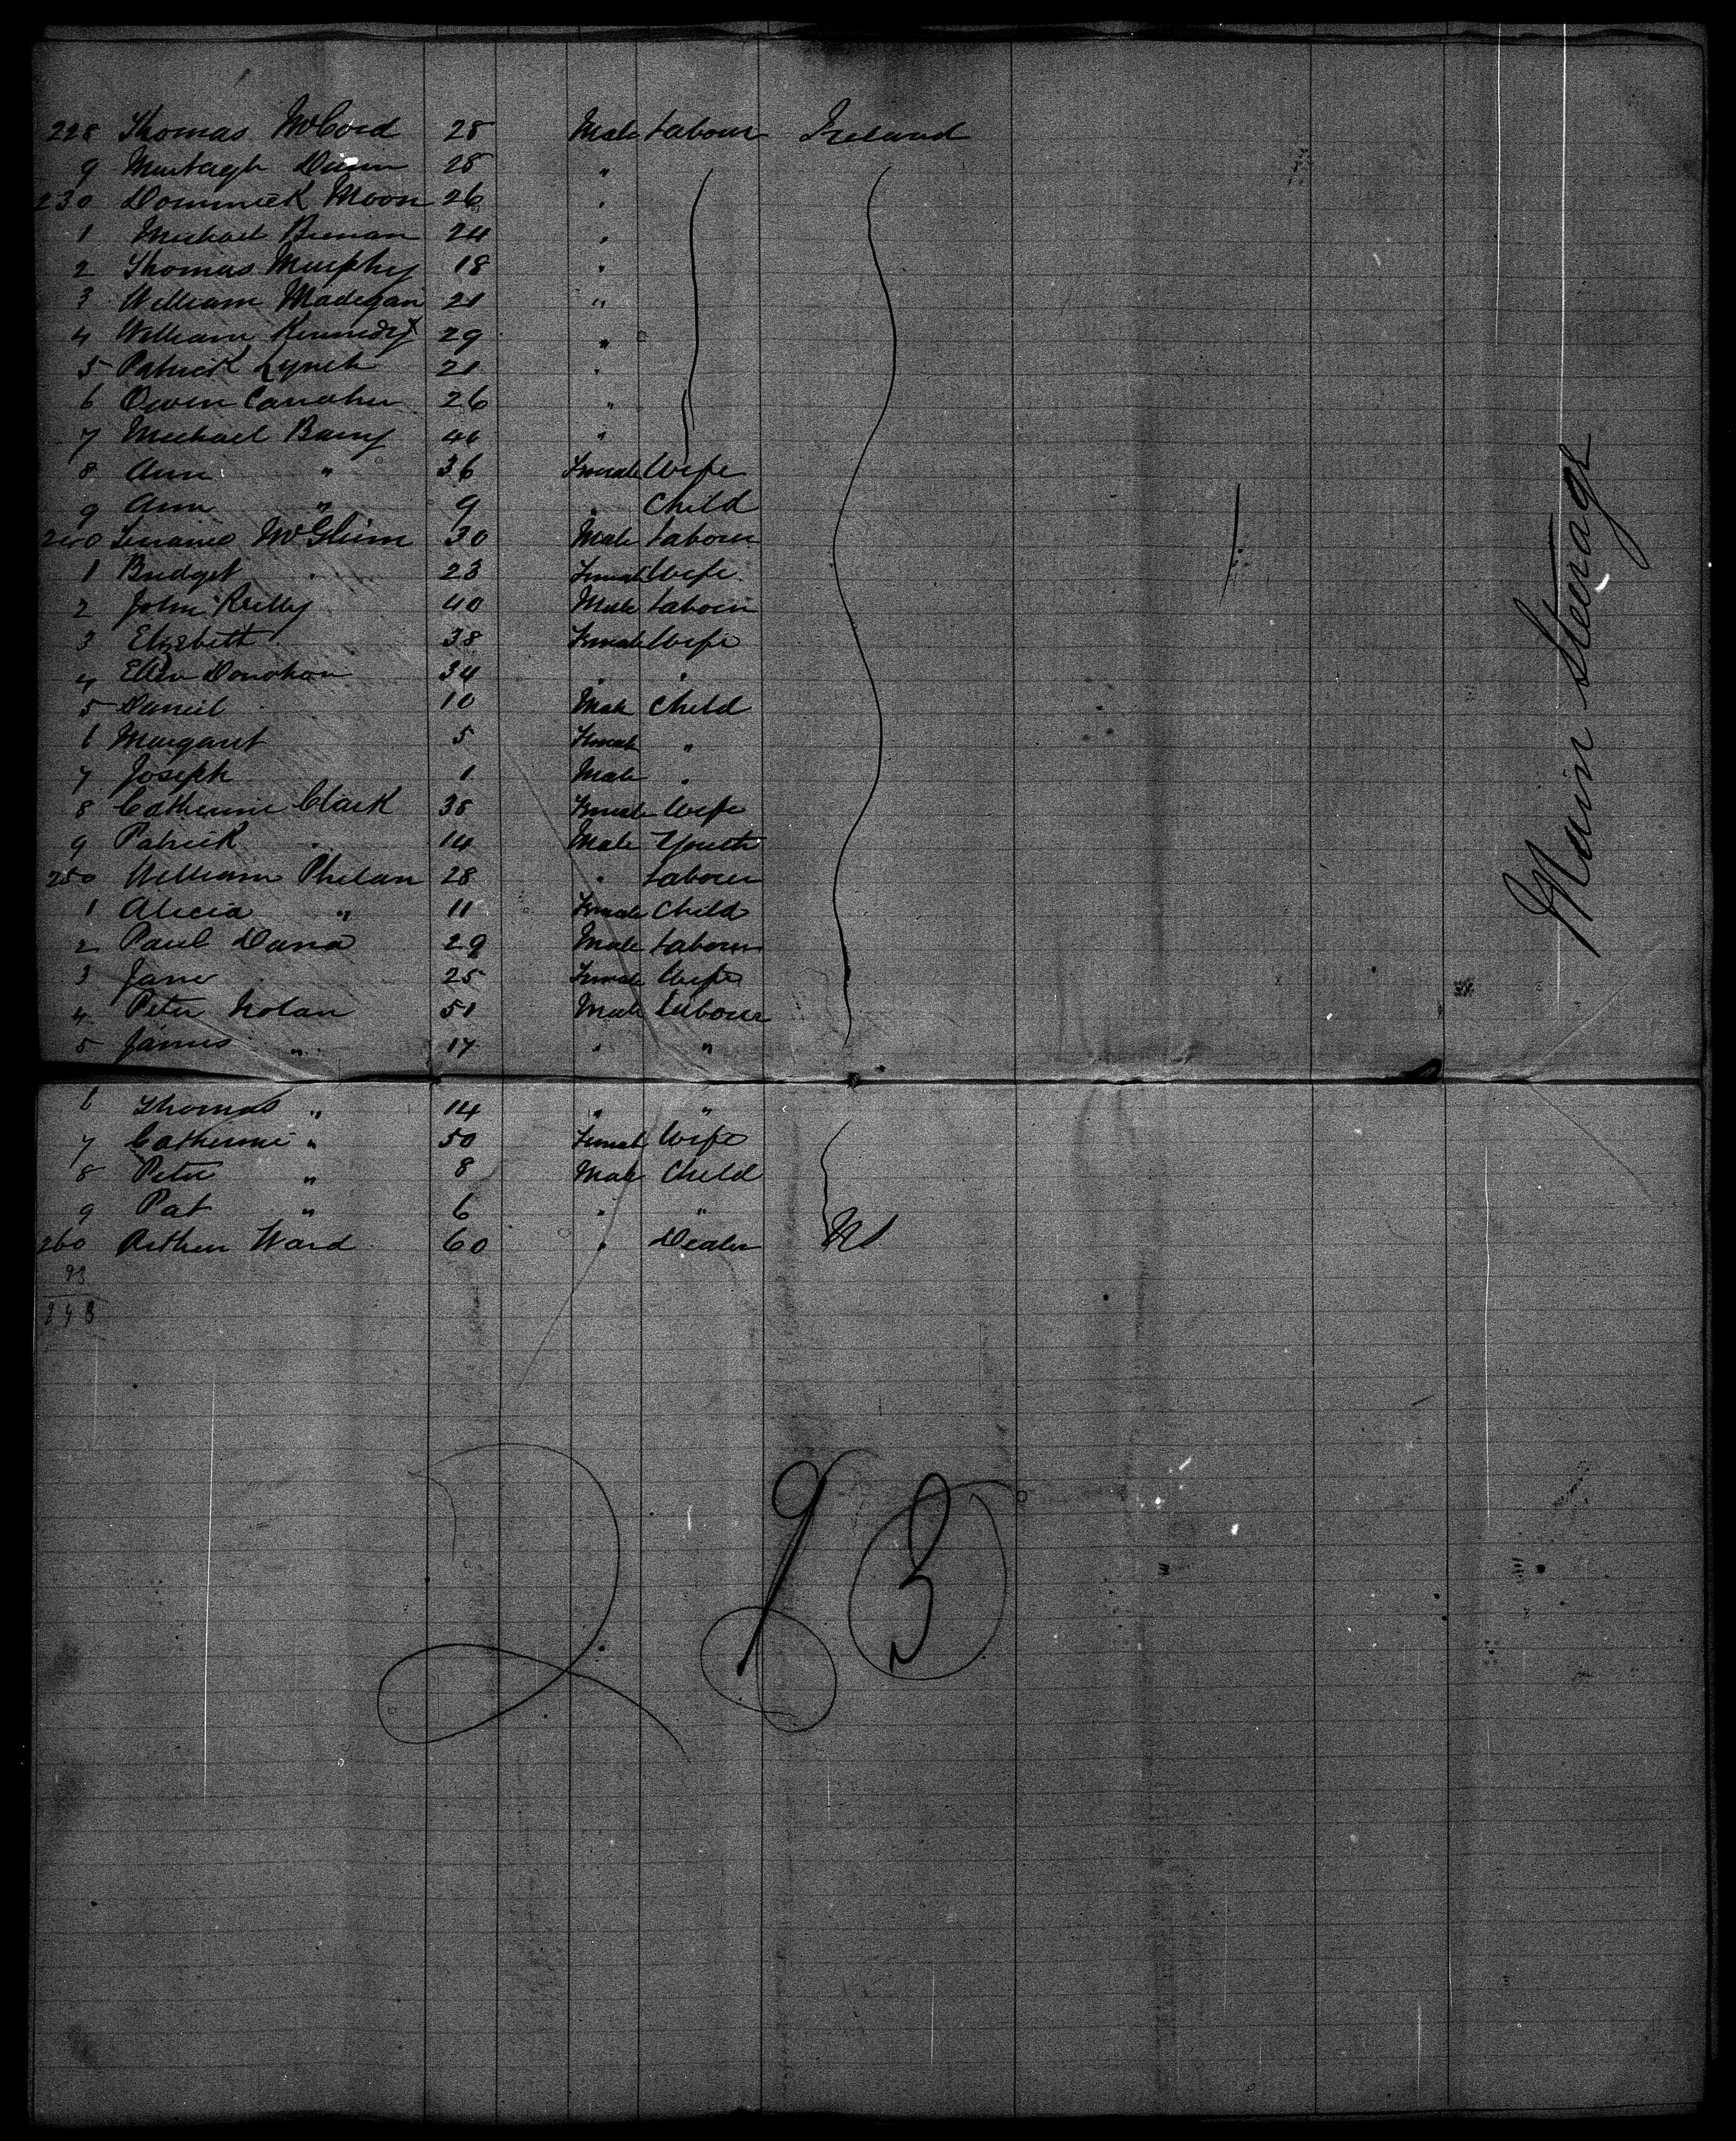 228 Thomas McCord 28 Male Labour Ireland
9 Murtagh Dunn 28 "
230 Dominick Moon 26 "
1 Michael Brenan 24 "
2 Thomas Murphy 18 "
3 William Madegan 21 "
4 William Kennedy x 29 "
5 Patrick Lynch 21 "
6 Owen Carraher 26 "
7 Michael Barry 46 "
8 Ann " 36 Female Wife
9 Ann " 9 " Child
240 McGlinn 30 Male Labour
1 Bridget " 23 Female Wife
2 John Reilly 40 Male Labour
3 Elizabeth 38 Female Wife
4 Ellen Donohoe 34 " "
5 Daniel 10 Male Child
6 Margaret 5 Female "
7 Joseph 1 Male "
8 Catherine Clark 38 Female Wife
9 Patrick " 14 Male Youth
250 William Phelan 28 " Labour
1 Alicia " 11 Female Child
2 Paul Dana 29 Male Labour
3 Jane 25 Female Wife
4 Peter Nolan 51 Male Labour
5 James " 17 " "
6 Thomas " 14 " "
7 Catherine " 50 Female Wife
8 Peter " 8 Male Child
9 Pat " 6 " "
260 Arthur Ward 60 " Dealer US
93
Main Steerage
293